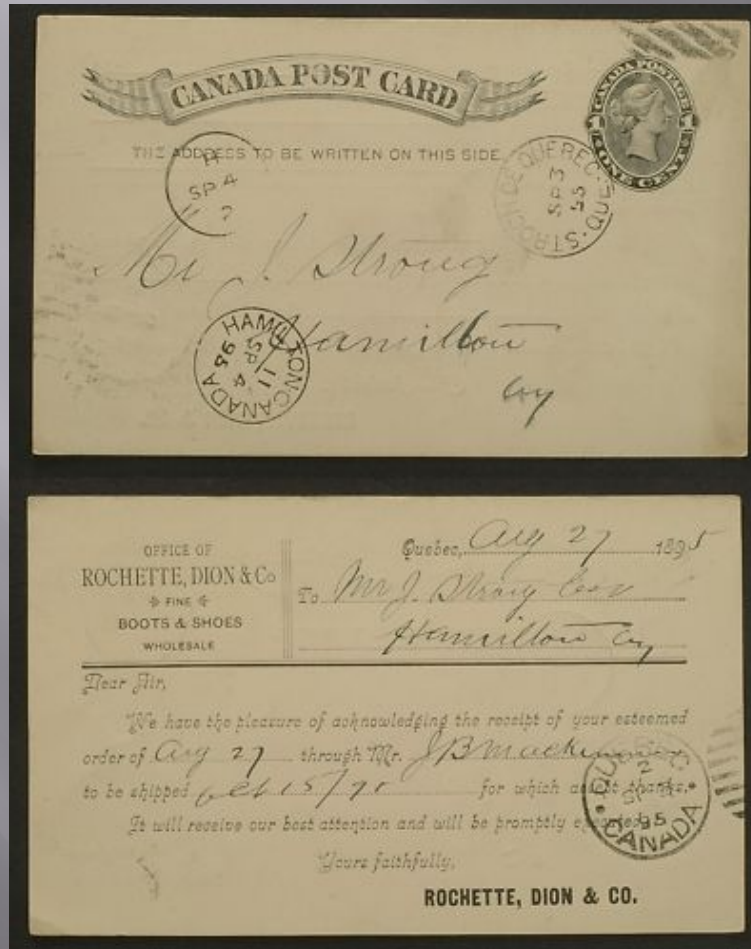 CANADA POST CARD
CANADA POSTAGE
ONE CENT
THE ADDRESS TO BE WRITTEN ON THIS SIDE
ST ROCH DE QUEBEC · QUE
SP 3
95
SP 4
2
Mr J. Strong
Hamilton
HAMILTON CANADA
11
SP 4
95
OFFICE OF
ROCHETTE, DION & Co
FINE
BOOTS & SHOES
WHOLESALE
Quebec, Aug 27 1895
To Mr J. Strong
Hamilton
Dear Sir,
We have the pleasure of acknowledging the receipt of your esteemed
order of Aug 27 through Mr. J B
to be shipped for which accept thanks.
It will receive our best attention and will be promptly executed.
Yours faithfully,
ROCHETTE, DION & CO.
QUEBEC
2
95
CANADA